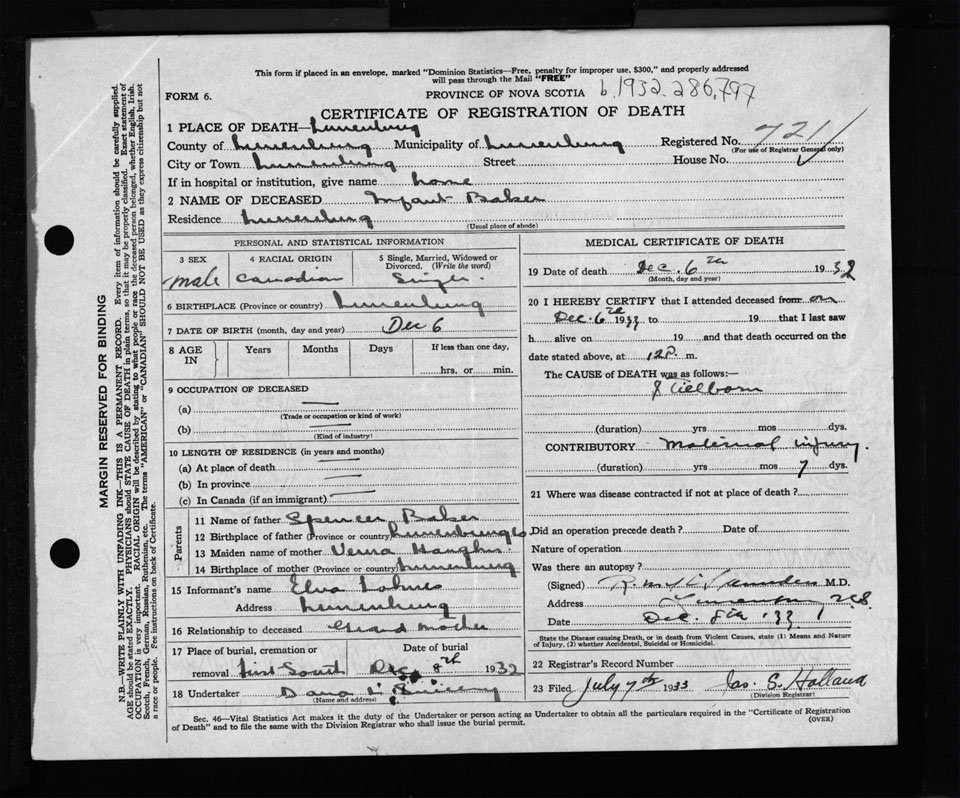 This form if placed in an envelope, marked "Dominion Statistics—Free, penalty for improper use, $300," and properly addressed
will pass through the Mail "FREE"
FORM 6.
PROVINCE OF NOVA SCOTIA b.1932.286,797
CERTIFICATE OF REGISTRATION OF DEATH
1 PLACE OF DEATH—Lunenburg
County of Lunenburg Municipality of Lunenburg Registered No. 721
(For use of Registrar General only)
City or Town Lunenburg Street House No.
If in hospital or institution, give name home
2 NAME OF DECEASED Infant Baker
Residence Lunenburg
(Usual place of abode)
MARGIN RESERVED FOR BINDING
N.B.—WRITE PLAINLY WITH UNFADING INK—THIS IS A PERMANENT RECORD. Every item of information should be carefully supplied.
AGE should be stated EXACTLY. PHYSICIANS should STATE CAUSE OF DEATH in plain terms, so that it may be properly classified. Exact statement of
OCCUPATION is very important. RACIAL ORIGIN will be described by stating to what people or race the deceased person belonged, whether English, Irish,
Scotch, French, German, Russian, Ruthenian, etc. The terms "AMERICAN" or "CANADIAN" SHOULD NOT BE USED as they express citizenship but not
a race or people. See instructions on back of Certificate.
PERSONAL AND STATISTICAL INFORMATION
3 SEX 4 RACIAL ORIGIN 5 Single, Married, Widowed or
Divorced. (Write the word)
male Canadian Single
6 BIRTHPLACE (Province or country) Lunenburg
7 DATE OF BIRTH (month, day and year) Dec 6
8 AGE IN Years Months Days If less than one day,
hrs. or min.
9 OCCUPATION OF DECEASED
(a)
(Trade or occupation or kind of work)
(b)
(Kind of industry)
10 LENGTH OF RESIDENCE (in years and months)
(a) At place of death
(b) In province
(c) In Canada (if an immigrant)
Parents
11 Name of father Spencer Baker
12 Birthplace of father (Province or country) Lunenburg Co
13 Maiden name of mother Verna
14 Birthplace of mother (Province or country) Lunenburg
15 Informant's name Elva Lohnes
Address Lunenburg
16 Relationship to deceased Grand mother
17 Place of burial, cremation or Date of burial
removal First South Dec 8th 1932
18 Undertaker Dana
(Name and address)
MEDICAL CERTIFICATE OF DEATH
19 Date of death Dec. 6th 1932
(Month, day and year)
20 I HEREBY CERTIFY that I attended deceased from on
Dec. 6th 1933 to 19 that I last saw
h alive on 19 and that death occurred on the
date stated above, at 12 P. m.
The CAUSE of DEATH was as follows:—
Stillborn
(duration) yrs mos dys.
CONTRIBUTORY Maternal injury.
(duration) yrs mos 7 dys.
21 Where was disease contracted if not at place of death?
Did an operation precede death? Date of
Nature of operation
Was there an autopsy?
(Signed) M.D.
Address Lunenburg N.S.
Date Dec. 8th '33
State the Disease causing Death, or in death from Violent Causes, state (1) Means and Nature
of Injury, (2) whether Accidental, Suicidal or Homicidal.
22 Registrar's Record Number
23 Filed July 7th 1933 Jas. S. Holland
(Division Registrar)
Sec. 46—Vital Statistics Act makes it the duty of the Undertaker or person acting as Undertaker to obtain all the particulars required in the "Certificate of Registration
of Death" and to file the same with the Division Registrar who shall issue the burial permit.
(OVER)